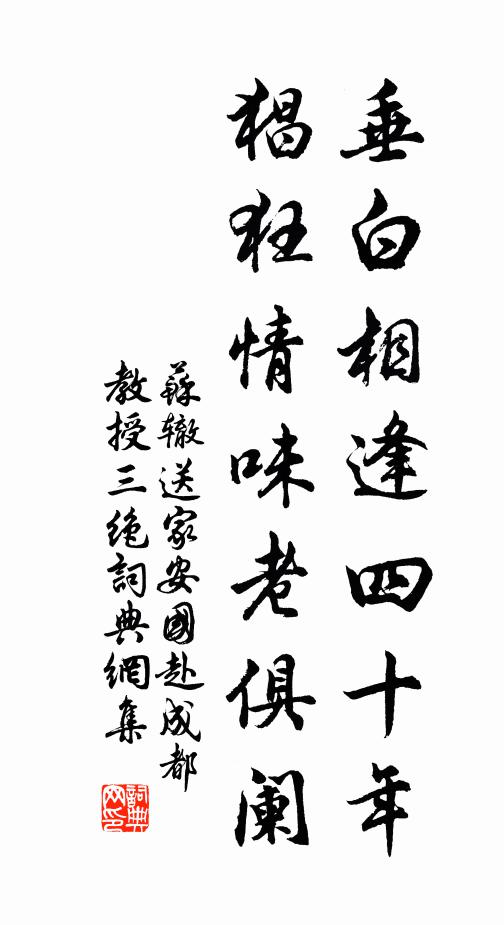 垂白相逢四十年
猖狂情味老俱阑
蘇辙送家安國赴成都
教授三絶詞典網集
詞典网印